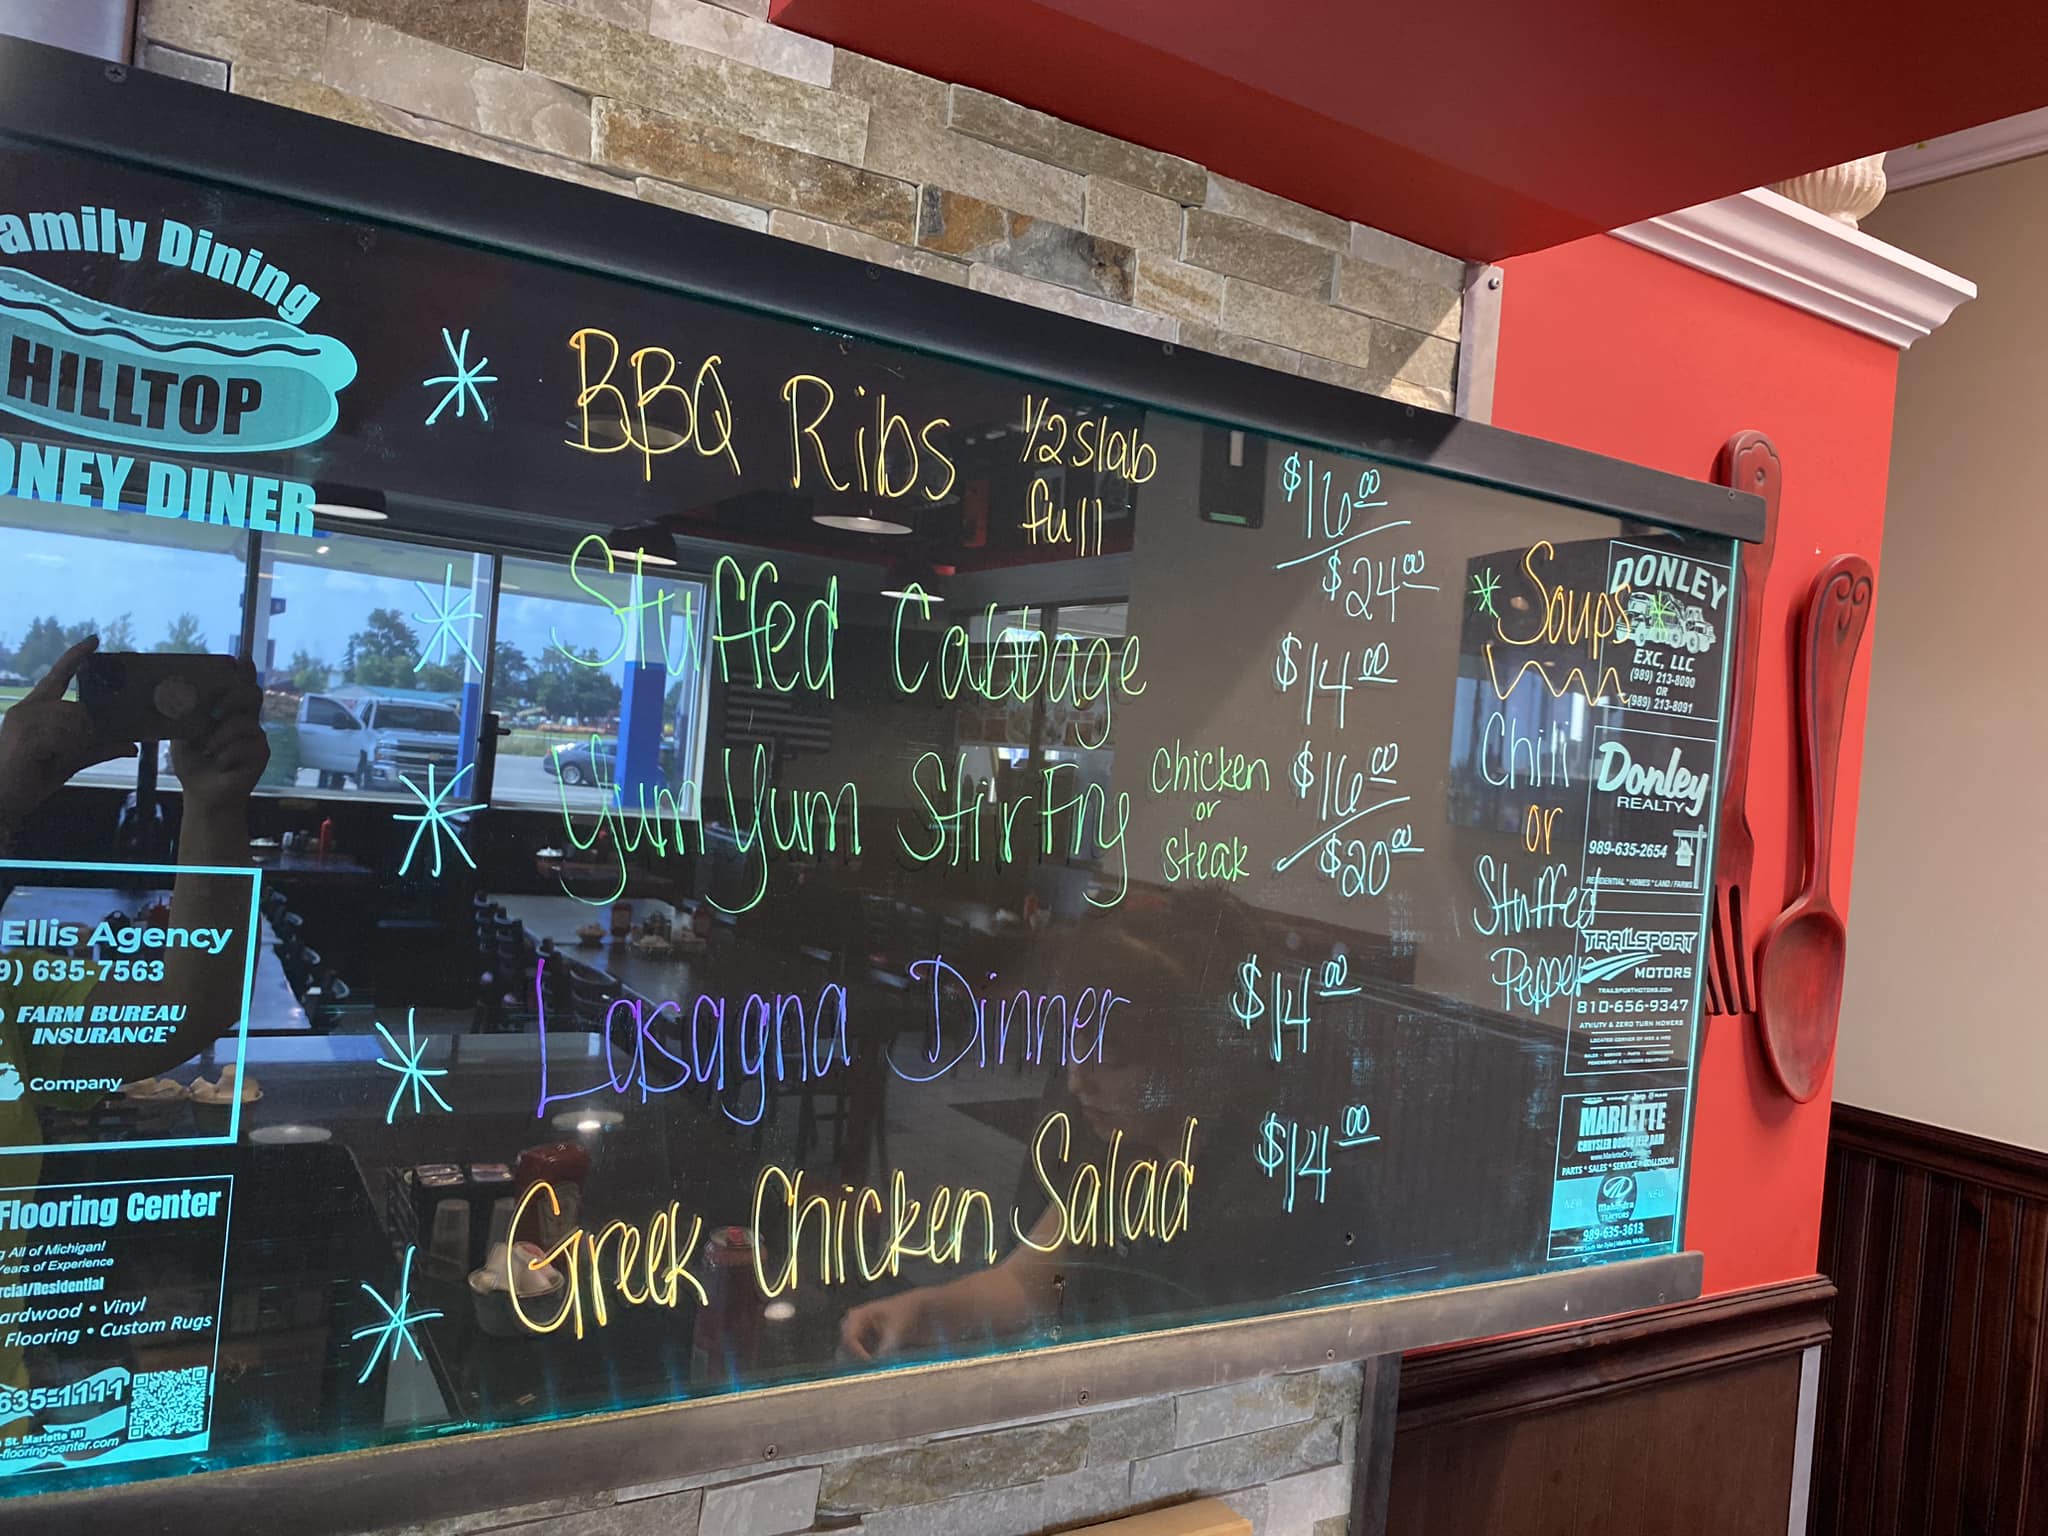 amily Dining
HILLTOP
ONEY DINER
BBQ Ribs 1/2 slab $16.00
full $24.00
Stuffed Cabbage $14.00
Yum Yum Stir Fry chicken $16.00
or
steak $20.00
Lasagna Dinner $14.00
Greek Chicken Salad $14.00
Soups
Chili
or
Stuffed
Pepper
Ellis Agency
9) 635-7563
FARM BUREAU
INSURANCE
Company
Flooring Center
g All of Michigan!
Years of Experience
rcial/Residential
ardwood • Vinyl
Flooring • Custom Rugs
635-1111
St. Marlette MI
-flooring-center.com
DONLEY
EXC, LLC
(989) 213-8090
OR
(989) 213-8091
Donley
REALTY
989-635-2654
RESIDENTIAL * HOMES * LAND / FARMS
TRAILSPORT
MOTORS
TRAILSPORTMOTORS.COM
810-656-9347
ATV/UTV & ZERO TURN MOWERS
MARLETTE
CHRYSLER DODGE JEEP RAM
PARTS * SALES * SERVICE * COLLISION
NEW Mahindra NEW
TRACTORS
989-635-3613